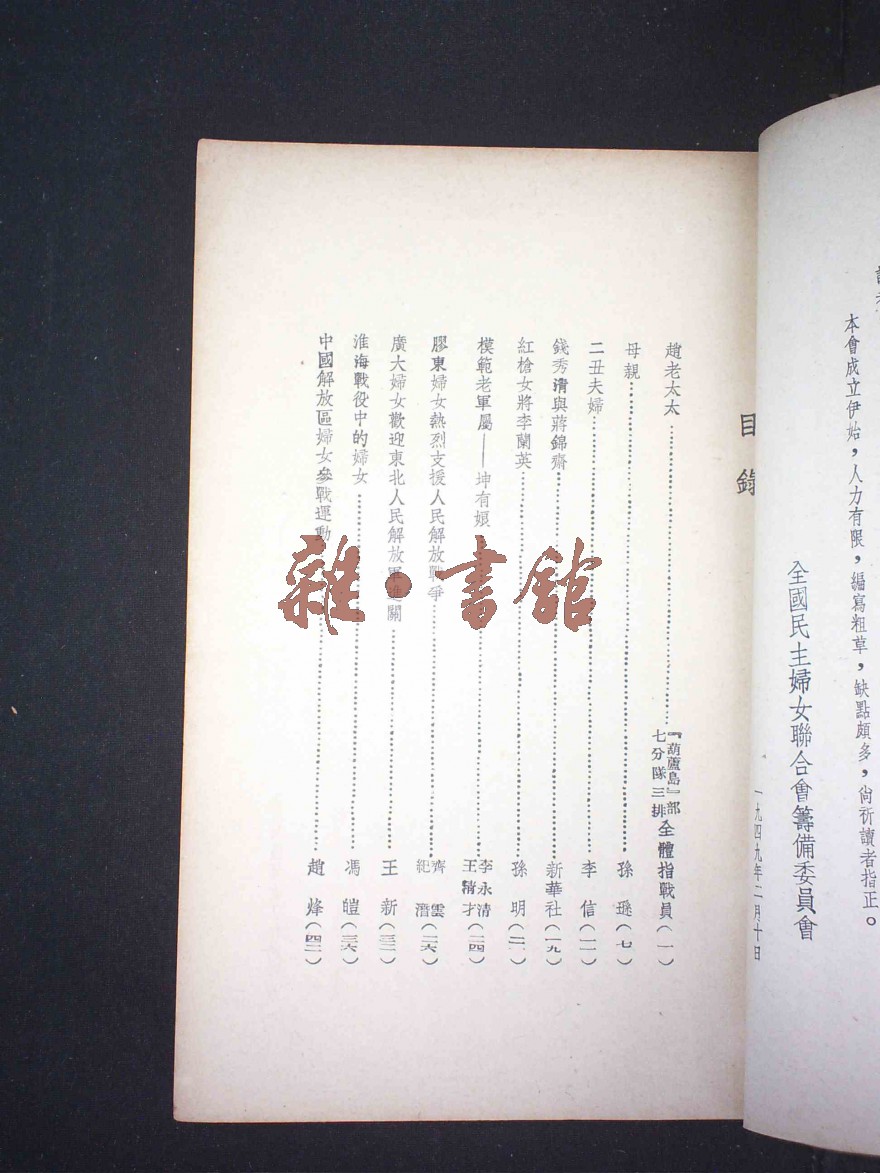 本會成立伊始，人力有限，編寫粗草，缺點頗多，尙祈讀者指正。
全國民主婦女聯合會籌備委員會
一九四九年二月十日
目錄
趙老太太…………『葫蘆島』部七分隊三排全體指戰員（一）
母親…………孫遜（七）
二丑夫婦…………李信（一一）
錢秀清與蔣錦齋…………新華社（一九）
紅槍女將李蘭英…………孫明（二一）
模範老軍屬——坤有娘…………李永清 王精才（二四）
膠東婦女熱烈支援人民解放戰爭…………齊雲 紀潛（二六）
廣大婦女歡迎東北人民解放軍進關…………王新（三二）
淮海戰役中的婦女…………馮皚（三六）
中國解放區婦女參戰運動…………趙烽（四二）
雜・書館